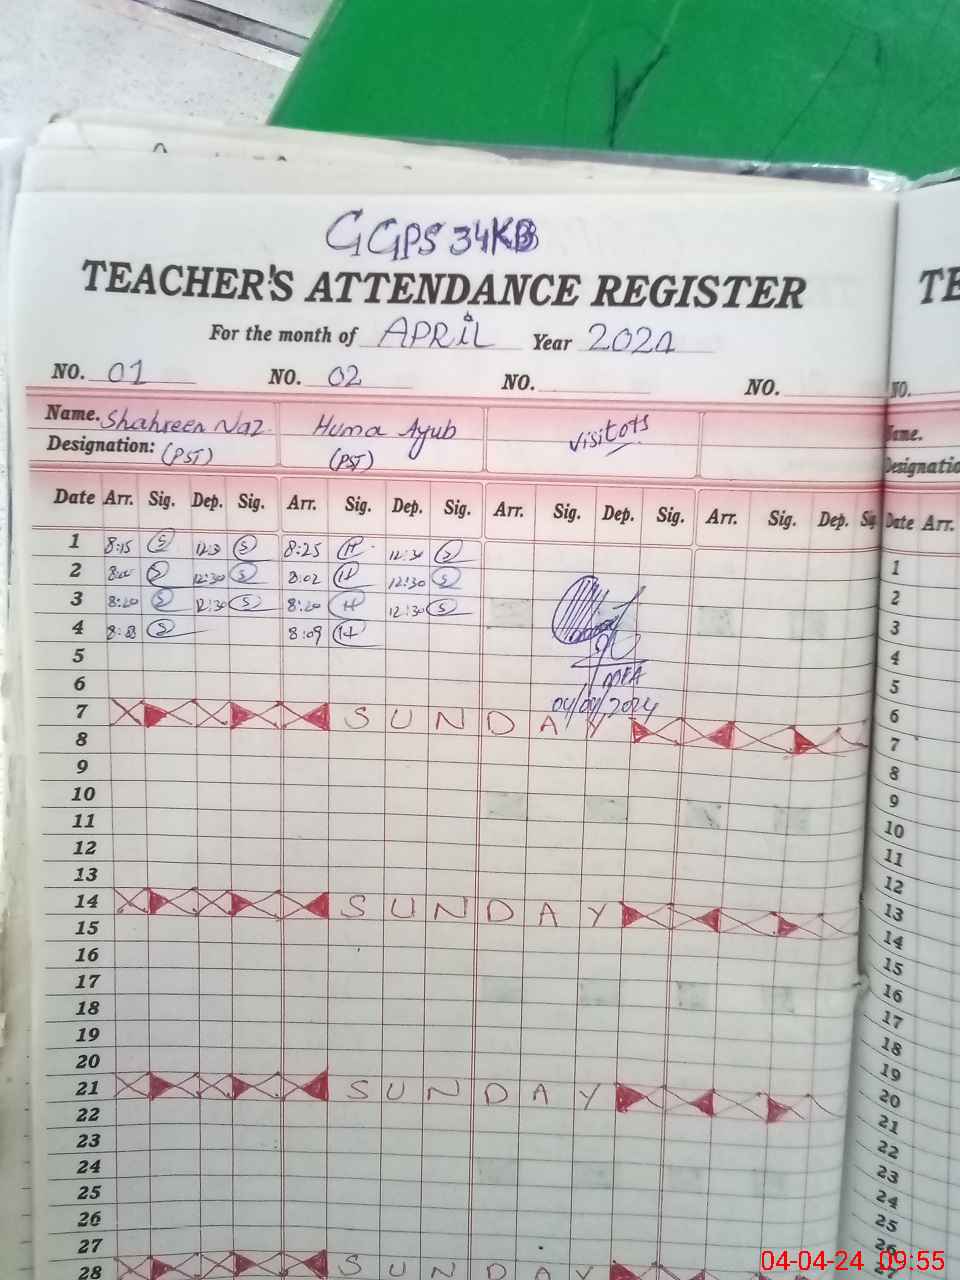 GGPS 34KB
TEACHER'S ATTENDANCE REGISTER
For the month of APRiL Year 2024
NO. 01 NO. 02 NO. NO.
Name. Shahreen Naz Huma Ayub visitots
Designation: (PST) (PST)
Date Arr. Sig. Dep. Sig. Arr. Sig. Dep. Sig. Arr. Sig. Dep. Sig. Arr. Sig. Dep. Sig
1 8:15 S S 8:25 H 12:30 S
2 S 12:30 S 8:02 H 12:30 S
3 8:20 S 12:30 S 8:20 H 12:30 S
4 S 8:09 H
5
6
04/04/2024
7 SUNDAY
8
9
10
11
12
13
14 SUNDAY
15
16
17
18
19
20
21 SUNDAY
22
23
24
25
26
27
28 SUNDAY
TE
NO.
ame.
Designatio
Date Arr.
1
2
3
4
5
6
7
8
9
10
11
12
13
14
15
16
17
18
19
20
21
22
23
24
25
26
04-04-24 09:55